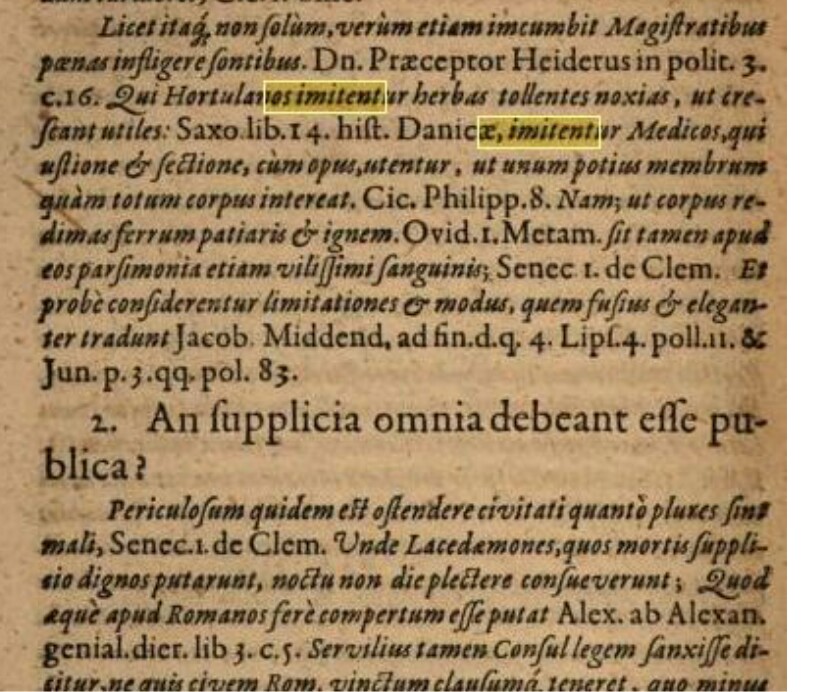 Licet itaq́, non ſolùm, verùm etiam imcumbit Magiſtratibus
pœnas infligere ſontibus. Dn. Præceptor Heiderus in polit. 3.
c.16. Qui Hortulanos imitentur herbas tollentes noxias, ut cre-
ſcant utiles: Saxo lib. 14. hiſt. Danicæ, imitentur Medicos, qui
uſtione & ſectione, cùm opus, utentur, ut unum potius membrum
quàm totum corpus intereat. Cic. Philipp. 8. Nam; ut corpus re-
dimas ferrum patiaris & ignem. Ovid. 1. Metam. ſit tamen apud
eos parſimonia etiam viliſſimi ſanguinis; Senec 1. de Clem. Et
probè conſiderentur limitationes & modus, quem fuſius & elegan-
ter tradunt Jacob. Middend, ad fin. d. q. 4. Lipſ. 4. poll. 11. &
Jun. p. 3. qq. pol. 83.
2. An ſupplicia omnia debeant eſſe pu-
blica?
Periculoſum quidem eſt oſtendere civitati quantò plures ſint
mali, Senec. 1. de Clem. Unde Lacedæmones, quos mortis ſuppli-
cio dignos putarunt, noctu non die plectere conſueverunt; Quod
æquè apud Romanos ferè compertum eſſe putat Alex. ab Alexan.
genial. dier. lib 3. c. 5. Servilius tamen Conſul legem ſanxiſſe di-
citur, ne quis civem Rom. vinctum clauſumá, teneret, quo minus